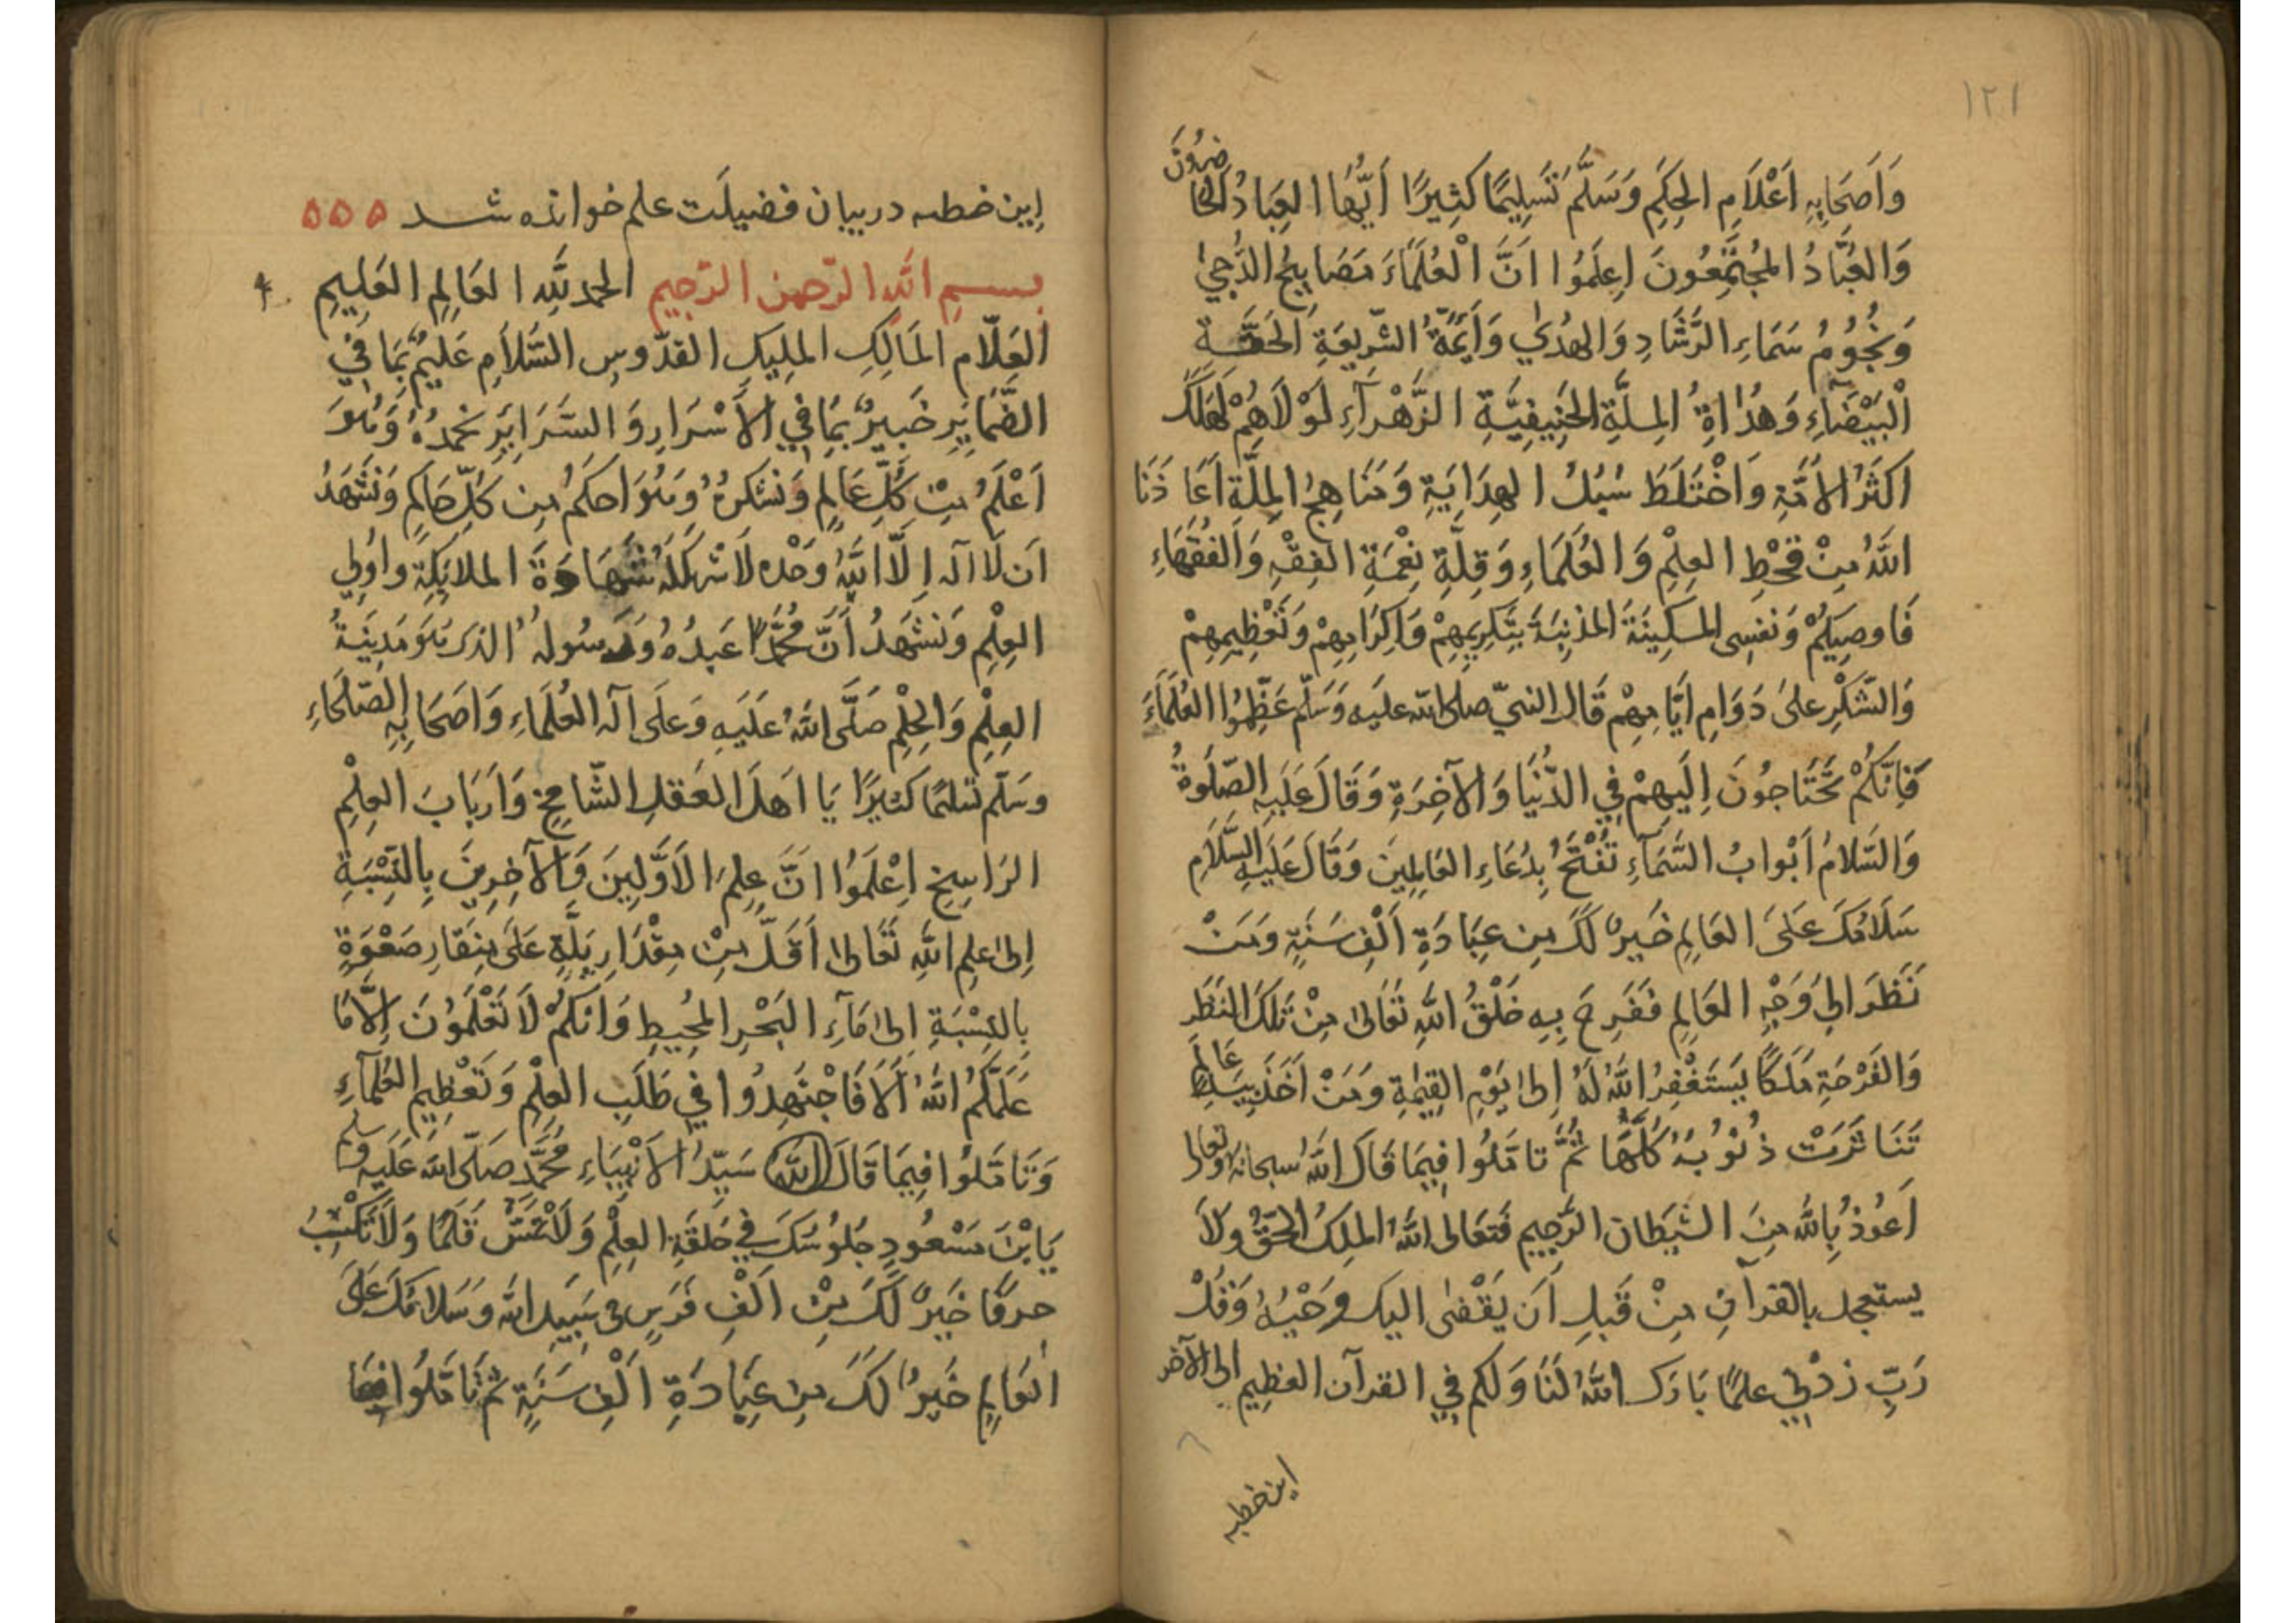 ١٢١
وَاَصحَابِهِ اَعْلَامِ الحِكَمِ وَسَلَّمَ تَسلِيمًا كَثِيرًا اَيُّهَا العِبَادُ الحَاضِرُونَ
وَالعُبَّادُ المُجتَمِعُونَ اِعلَمُوا اَنَّ الْعُلَمَاءَ مَصَابِيحُ الدُّجىٰ
وَنُجُومُ سَمَاءِ الرَّشَادِ وَالهُدىٰ وَاَئِمَّةُ الشَّرِيعَةِ الحَقَّة
الْبَيْضَآءِ وَهُدَاةُ المِلَّةِ الحَنِيفِيَّةِ الزَّهْرَآءِ لَوْلَاهُمْ لَهَلَكَ
اَكثَرُ الاُمَّةِ وَاخْتَلَطَ سُبُلُ الهِدَايَةِ وَمَنَاهِجُ المِلَّةِ اَعَاذَنَا
اللهُ مِنْ قَحْطِ العِلْمِ وَالعُلَمَاءِ وَقِلَّةِ نِعْمَةِ الفِقْهِ وَالفُقَهَاءِ
فَاوصِيكُمْ وَنَفسِى المسكِينَةَ المذنِبَةَ بِتَكرِيمِهِمْ وَاِكرَامِهِمْ وَتَعْظِيمِهِمْ
وَالشُّكْرِ عَلىٰ دَوَامِ اَيَّامِهِمْ قَالَ النبىّ صلى الله عليه وَسَلّم عَظِّمُوا العُلَمَاءَ
فَاِنَّكُمْ تَحْتَاجُونَ اِلَيهِمْ فِي الدُّنْيَا وَالآخِرَةِ وَقَالَ عَلَيهِ الصّلَوةُ
وَالسّلامُ اَبْوابُ السَّمَآءِ تُفْتَحُ بِدُعَاءِ العَالِمِينَ وَقَالَ عَلَيهِ السَّلَامِ
سَلَامُكَ عَلىَ العَالِمِ خَيرٌ لَكَ مِن عِبَادَةِ اَلْفِ سَنَةٍ وَمَنْ
نَظَرَ اِلىٰ وَجْهِ العَالِمِ فَفَرِحَ بِهِ خَلَقُ اللهِ تَعَالىٰ مِنْ تِلكَ النَظَرِ
وَالفَرْحَةِ مَلَكًا يَستَغْفِرُ اللهُ لَهُ اِلىٰ يَوْمِ القِيمَةِ وَمَنْ اَخَذَ بِيَدِ عَالِمٍ
تَنَاثَرَتْ ذُنُوبُهُ كُلُّهَا ثُمَّ تامَّلُوا فِيمَا قَالَ اللهُ سبحانه وتعالى
اَعُوذُ بِاللهِ مِنَ الشيَطَانِ الرَّجِيمِ فَتعَالى اللهُ الملِكُ الحَقُّ وَلاَ
يستعجل بالقرآنِ مِنْ قَبلِ اَن يَقْضىٰ اليكَ وَحْيُهُ وَقُلْ
رَبِّ زِدْنِي عِلمًا بَارَكَ اللهُ لَنَا وَلَكم فِي القرآن العظِيمِ الى الآخر
اين خطبه
اِين خطبه در بيان فضيلَت علم خوانده شد ٥٥٥
بسم الله الرّحمن الرّحيم الحمدُ للهِ العَالِمِ العَلِيمِ
العَلّامِ المَالِكِ المَلِيكِ القدّوسِ السَّلاَمِ عَلِيمٌ بِمَا فِي
الضَّمَايِرِ خَبِيرٌ بِمَا فِي الاَسْرَارِ وَالسَّرَايِرِ نَحمَدُهُ وَهُوَ
اَعْلَمُ مِنْ كُلِّ عَالِمٍ وَنَشكُرُهُ وَهُوَ اَحكَمُ مِن كُلِّ حَاكِمٍ وَنَشهَدُ
اَن لَا اله اِلّا اللهُ وَحْدَه لَا شَرِيكَ لَهُ شَهَادَةَ الملائِكَةِ واُولِي
العِلْمِ وَنَشهَدُ اَنَّ مُحَمَّدًا عَبدُهُ وَرَسُولُهُ الذى هُوَ مَدِينَةُ
العِلْمِ وَالحِلْمِ صَلَّى اللهُ عَلَيهِ وَعَلَى آله العُلَمَاءِ وَاَصحَابِهِ الصّلَحَاءِ
وسَلّم تسلِيمًا كَثيرًا يَا اَهلَ العَقلِ الشّامِخِ وَاَربَابَ العِلْمِ
الرَاسِخِ اِعْلَمُوا انَّ عِلمَ الاَوَّلِينَ وَالآخِرِينَ بِالنِّسْبَةِ
اِلىٰ عِلمِ اللهِ تَعَالىٰ اَقَلّ مِنْ مِقْدَارِ بَلَّةٍ عَلىَ مِنقَارِ صَعْوَةٍ
بِالنِّسْبَةِ اِلىٰ مَآءِ البَحْرِ المُحِيطِ وَاَنّكُمْ لَا تَعْلَمُونَ اِلَّا مَا
عَلَّمَكُمُ اللهُ اَلَا فَاجْتَهِدُوا فِي طَلَبِ العِلْمِ وَتَعْظِيمِ العُلَمآءِ
وَتَامَّلُوا فِيمَا قَالَ الله سَيِّدُ الاَنْبِيَاءِ مُحَمَّد صَلّى الله عَلَيهِ وسلم
يَابْنَ مَسْعُودٍ جُلوُسُكَ فِي حَلقَةِ العِلْمِ وَلَا تَمَسّ قَلَمًا وَلَا تَكْتُبُ
حرفًا خَيرٌ لَكَ مِنْ اَلْفِ فَرَسٍ فى سَبِيلِ الله وَسَلَامُكَ عَلىَ
العَالِمِ خَيرٌ لَكَ مِن عِبَادَةِ اَلْفِ سَنَةٍ ثمّ تَامَّلُوا فِيمَا